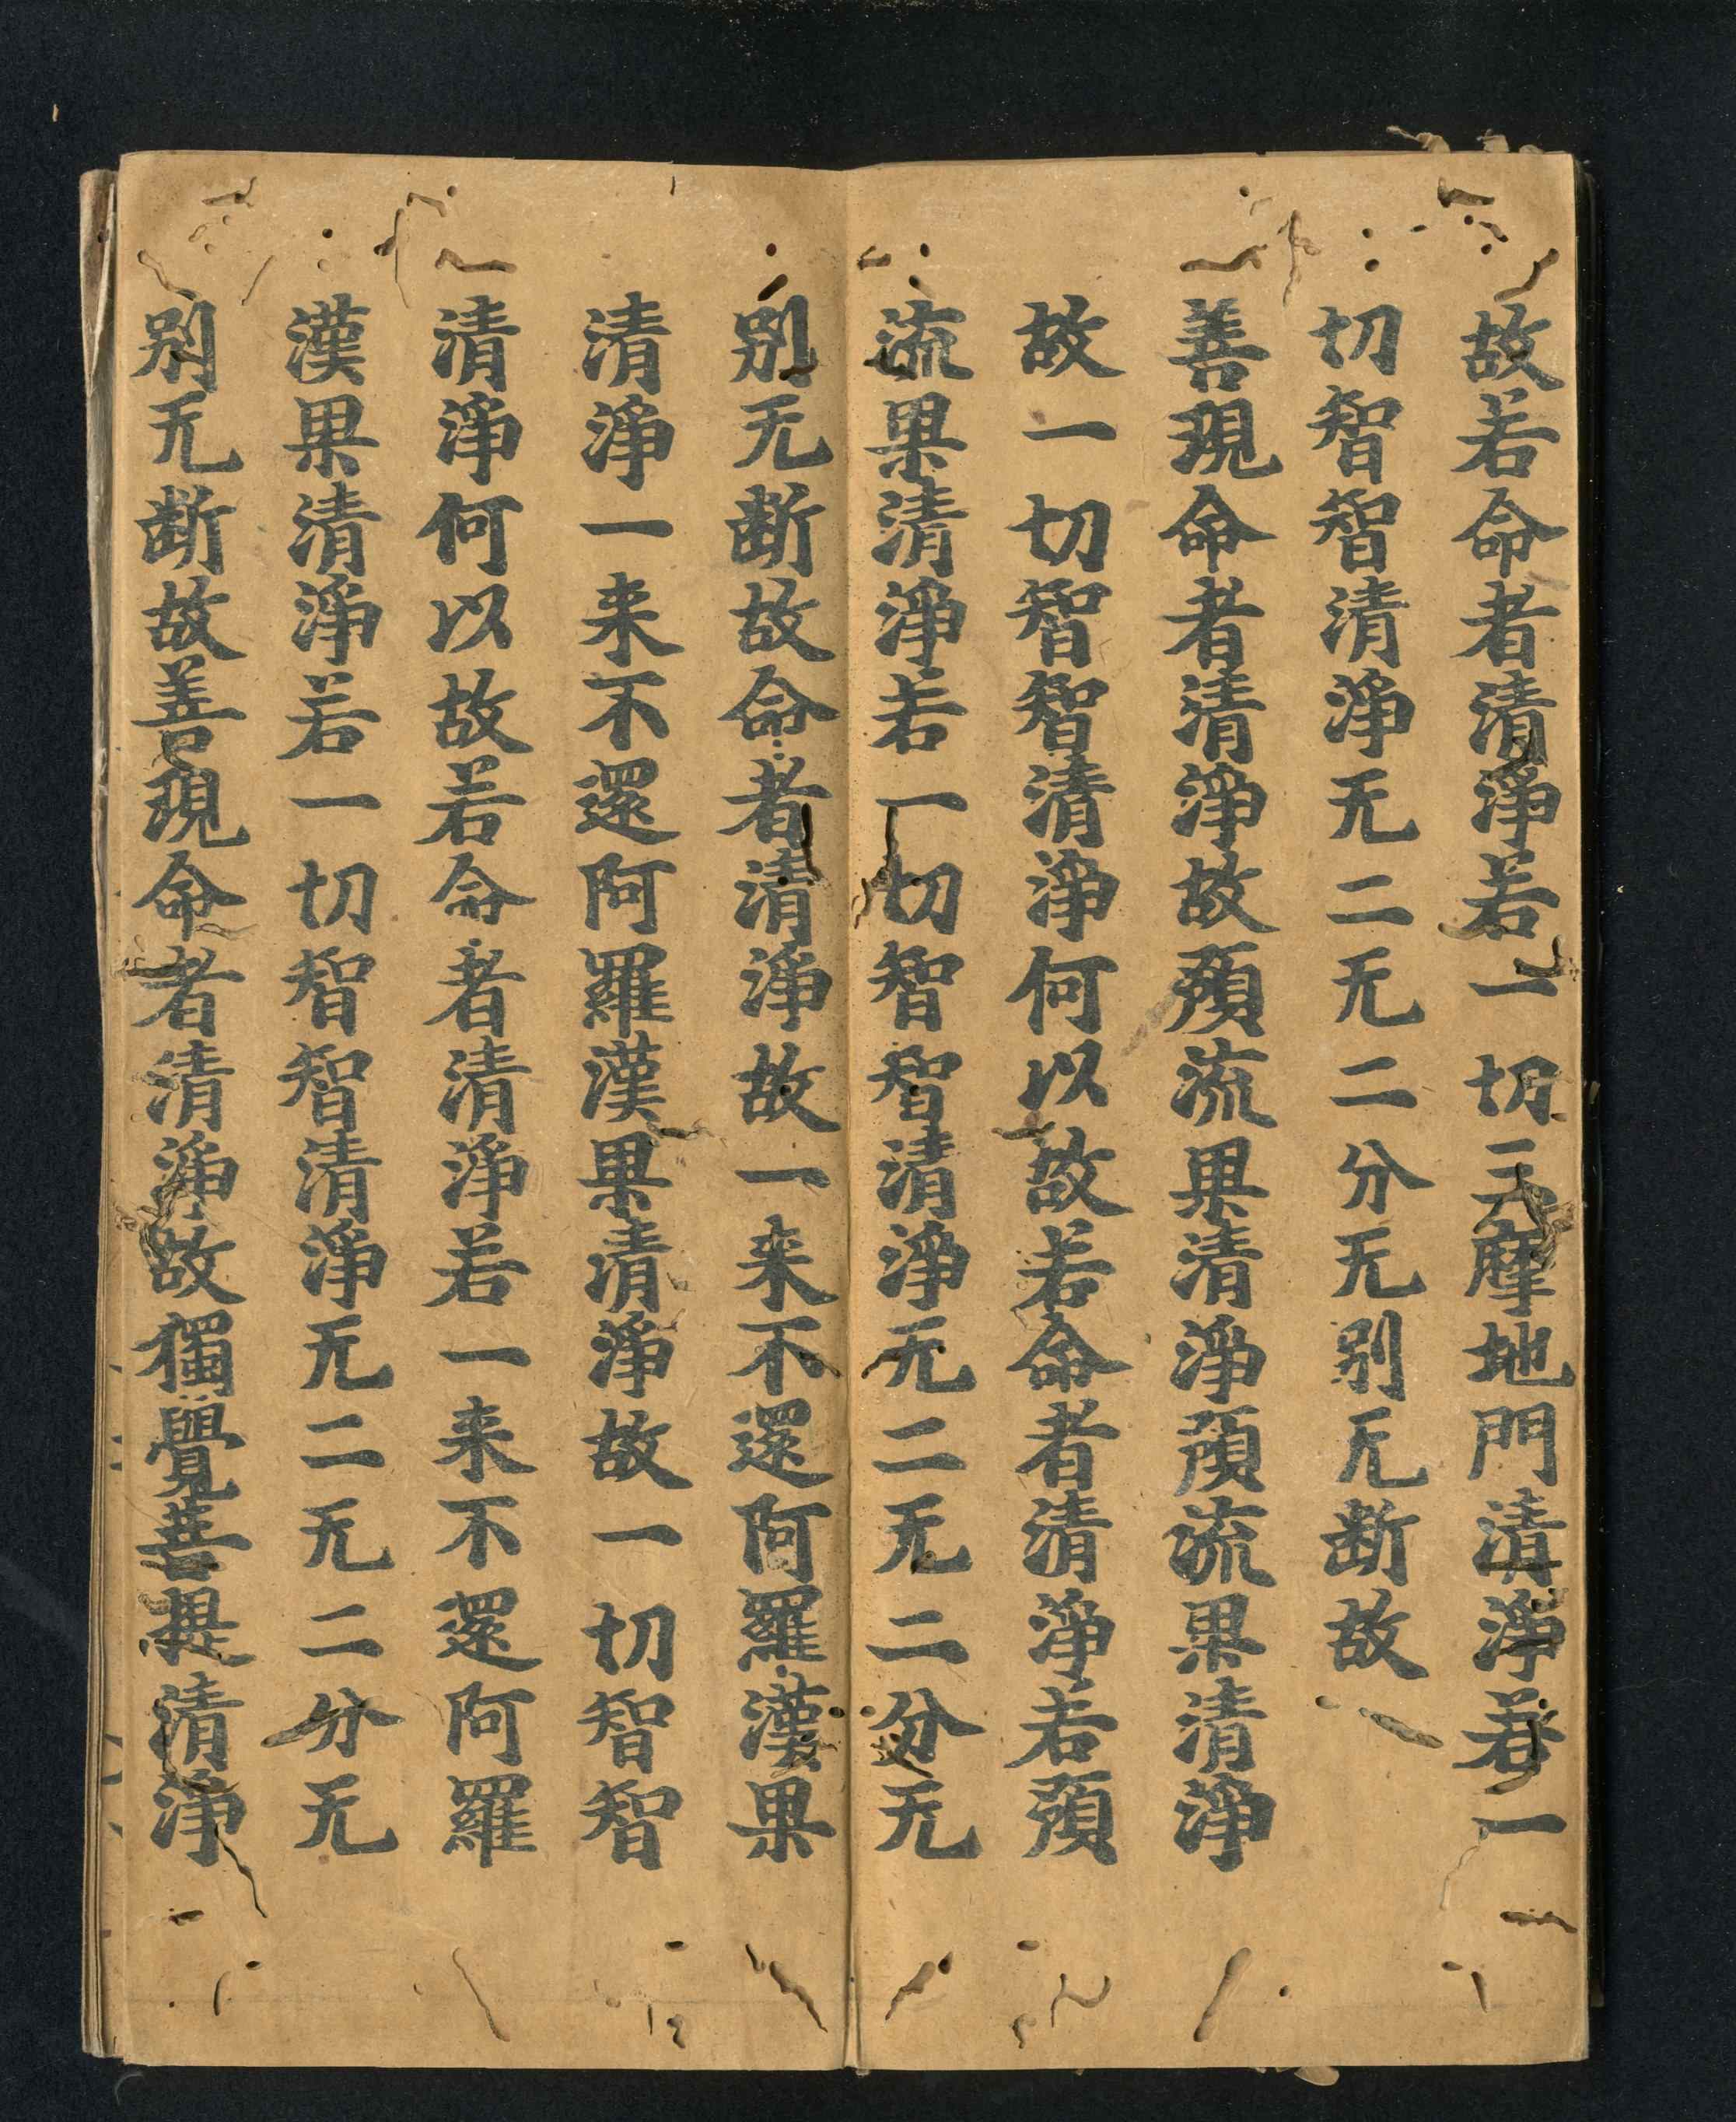 故若命者清淨若一切三摩地門清淨若一
切智智清淨无二无二分无別无断故
善現命者清淨故預流果清淨預流果清淨
故一切智智清淨何以故若命者清淨若預
流果清淨若一切智智清淨无二无二分无
別无断故命者清淨故一来不還阿羅漢果
清淨一来不還阿羅漢果清淨故一切智智
清淨何以故若命者清淨若一来不還阿羅
漢果清淨若一切智智清淨无二无二分无
別无断故善現命者清淨故獨覺菩提清淨